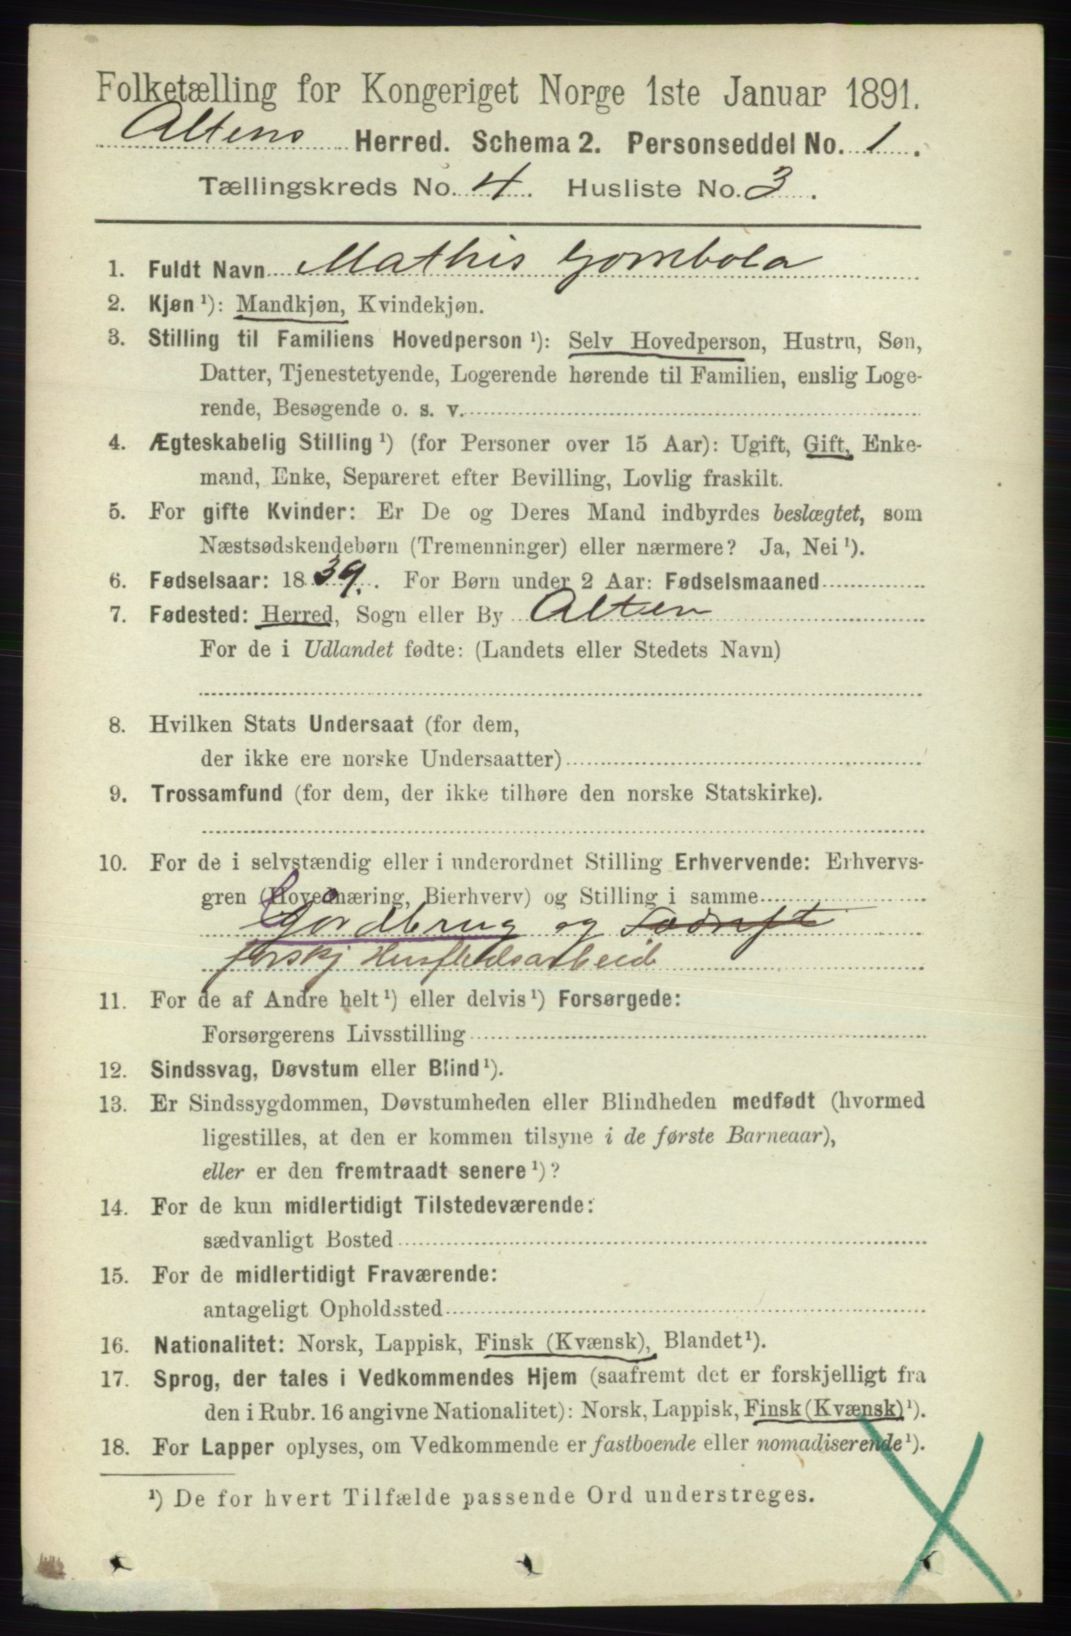 Folketælling for Kongeriget Norge 1ste Januar 1891.
Altens Herred. Schema 2. Personseddel No. 1.
Tællingskreds No. 4. Husliste No. 3.
1. Fuldt Navn Mathis Gombola
2. Kjøn ¹): Mandkjøn, Kvindekjøn.
3. Stilling til Familiens Hovedperson ¹): Selv Hovedperson, Hustru, Søn,
Datter, Tjenestetyende, Logerende hørende til Familien, enslig Loge-
rende, Besøgende o. s. v.
4. Ægteskabelig Stilling ¹) (for Personer over 15 Aar): Ugift, Gift, Enke-
mand, Enke, Separeret efter Bevilling, Lovlig fraskilt.
5. For gifte Kvinder: Er De og Deres Mand indbyrdes beslægtet, som
Næstsødskendebørn (Tremenninger) eller nærmere? Ja, Nei ¹).
6. Fødselsaar: 1839. For Børn under 2 Aar: Fødselsmaaned
7. Fødested: Herred, Sogn eller By Alten
For de i Udlandet fødte: (Landets eller Stedets Navn)
8. Hvilken Stats Undersaat (for dem,
der ikke ere norske Undersaatter)
9. Trossamfund (for dem, der ikke tilhøre den norske Statskirke).
10. For de i selvstændig eller i underordnet Stilling Erhvervende: Erhvervs-
gren (Hovednæring, Bierhverv) og Stilling i samme
Jordbrug og
forskj Husflidsarbeid
11. For de af Andre helt ¹) eller delvis ¹) Forsørgede:
Forsørgerens Livsstilling
12. Sindssvag, Døvstum eller Blind ¹).
13. Er Sindssygdommen, Døvstumheden eller Blindheden medfødt (hvormed
ligestilles, at den er kommen tilsyne i de første Barneaar),
eller er den fremtraadt senere ¹)?
14. For de kun midlertidigt Tilstedeværende:
sædvanligt Bosted
15. For de midlertidigt Fraværende:
antageligt Opholdssted
16. Nationalitet: Norsk, Lappisk, Finsk (Kvænsk), Blandet ¹).
17. Sprog, der tales i Vedkommendes Hjem (saafremt det er forskjelligt fra
den i Rubr. 16 angivne Nationalitet): Norsk, Lappisk, Finsk (Kvænsk) ¹).
18. For Lapper oplyses, om Vedkommende er fastboende eller nomadiserende ¹).
¹) De for hvert Tilfælde passende Ord understreges.